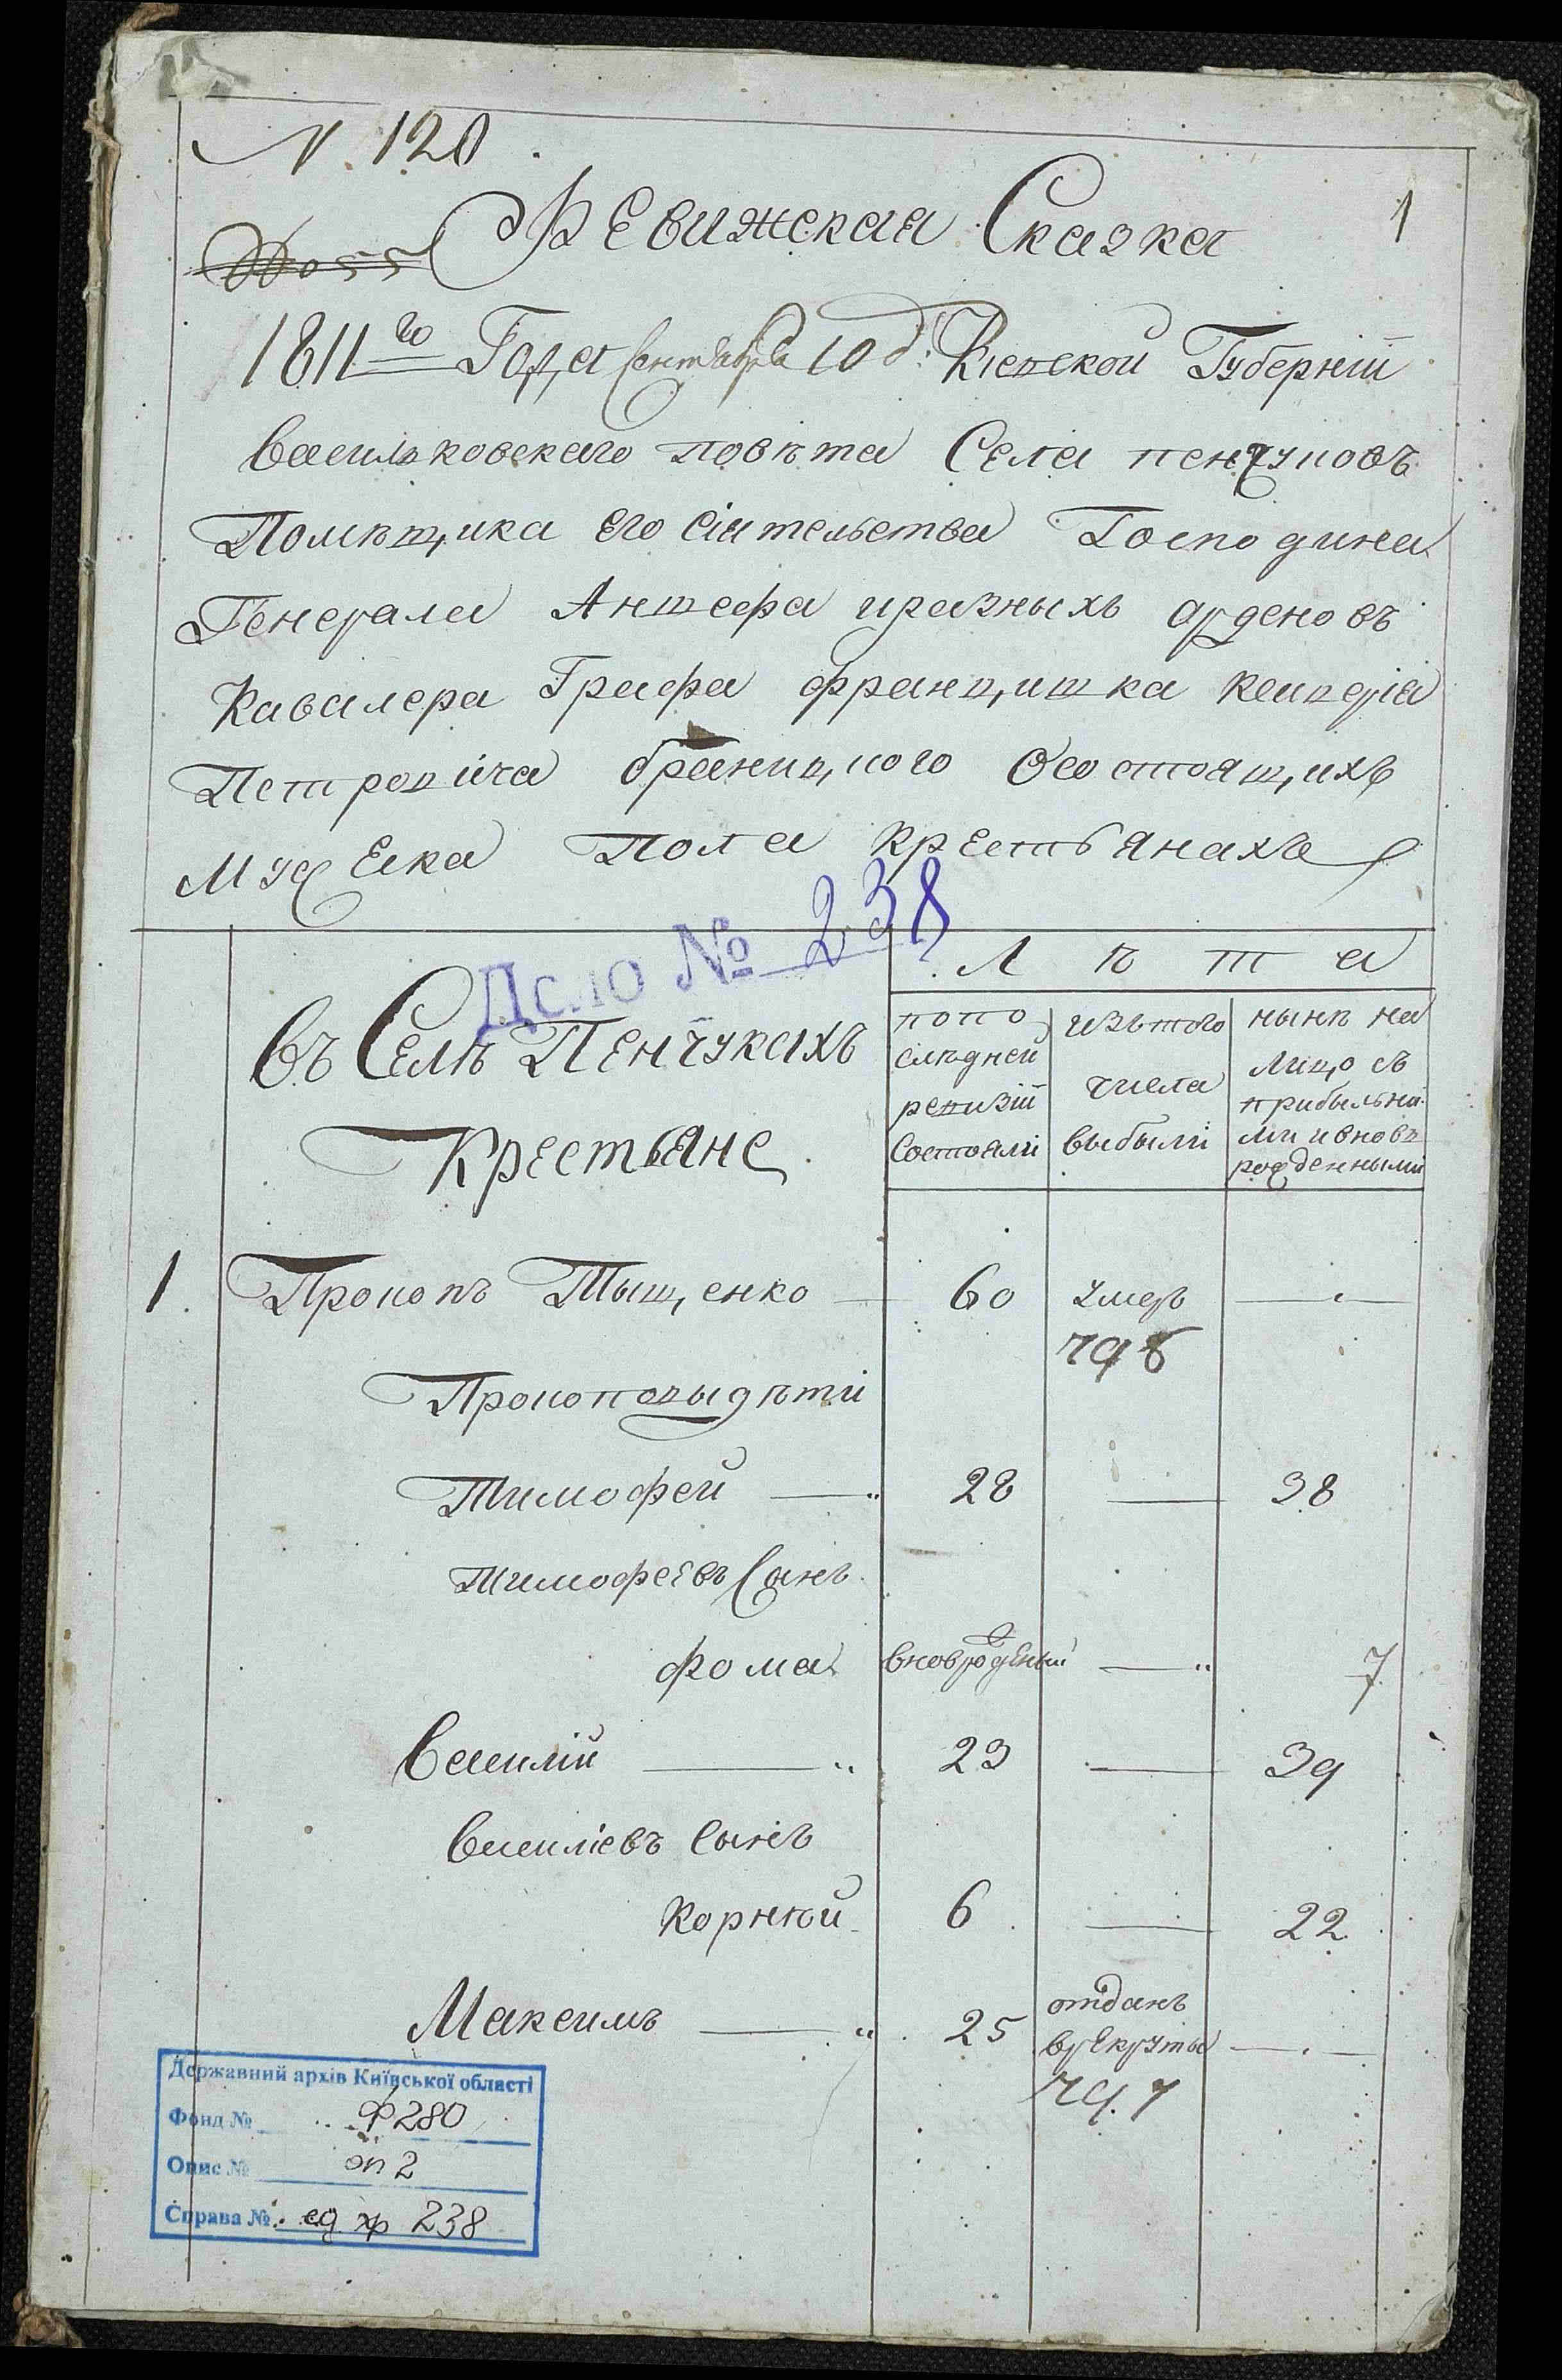 N. 120
1
Ревижская Сказка
1811го Года Сентября 10 д: Кіевской Губерніи
Васильковскаго повѣта Села пенчуковъ
Помѣщика его сіятельства Господина
Генерала Аншефа иразныхъ арденовъ
Кавалера Графа францишка Ксаверія
Петровича браницкого Осостоящихъ
Мужеска Пола крестьянахъ
Дело № 238
Лѣта
въ Селѣ Пенчукахъ
Крестьяне
попо
слѣдней
ревизіи
Состояли
изътого
числа
выбыли
нынѣ на
лицо съ
прибылы
ми ивновь
рожденными
1. Прокопъ Тыщенко — 60 умеръ —
798
Прокоповыдѣти
Тимофей — 28 — 38
Тимофеевъ Сынъ
фома вновроденый — 7
Василій — 23 — 39
Василіевъ Сынъ
Корнѣй 6 — 22
Максимъ — 25 отданъ
врекруты —
797
Державний архів Київської області
Фонд № Ф280
Опис № оп 2
Справа № ед хр 238